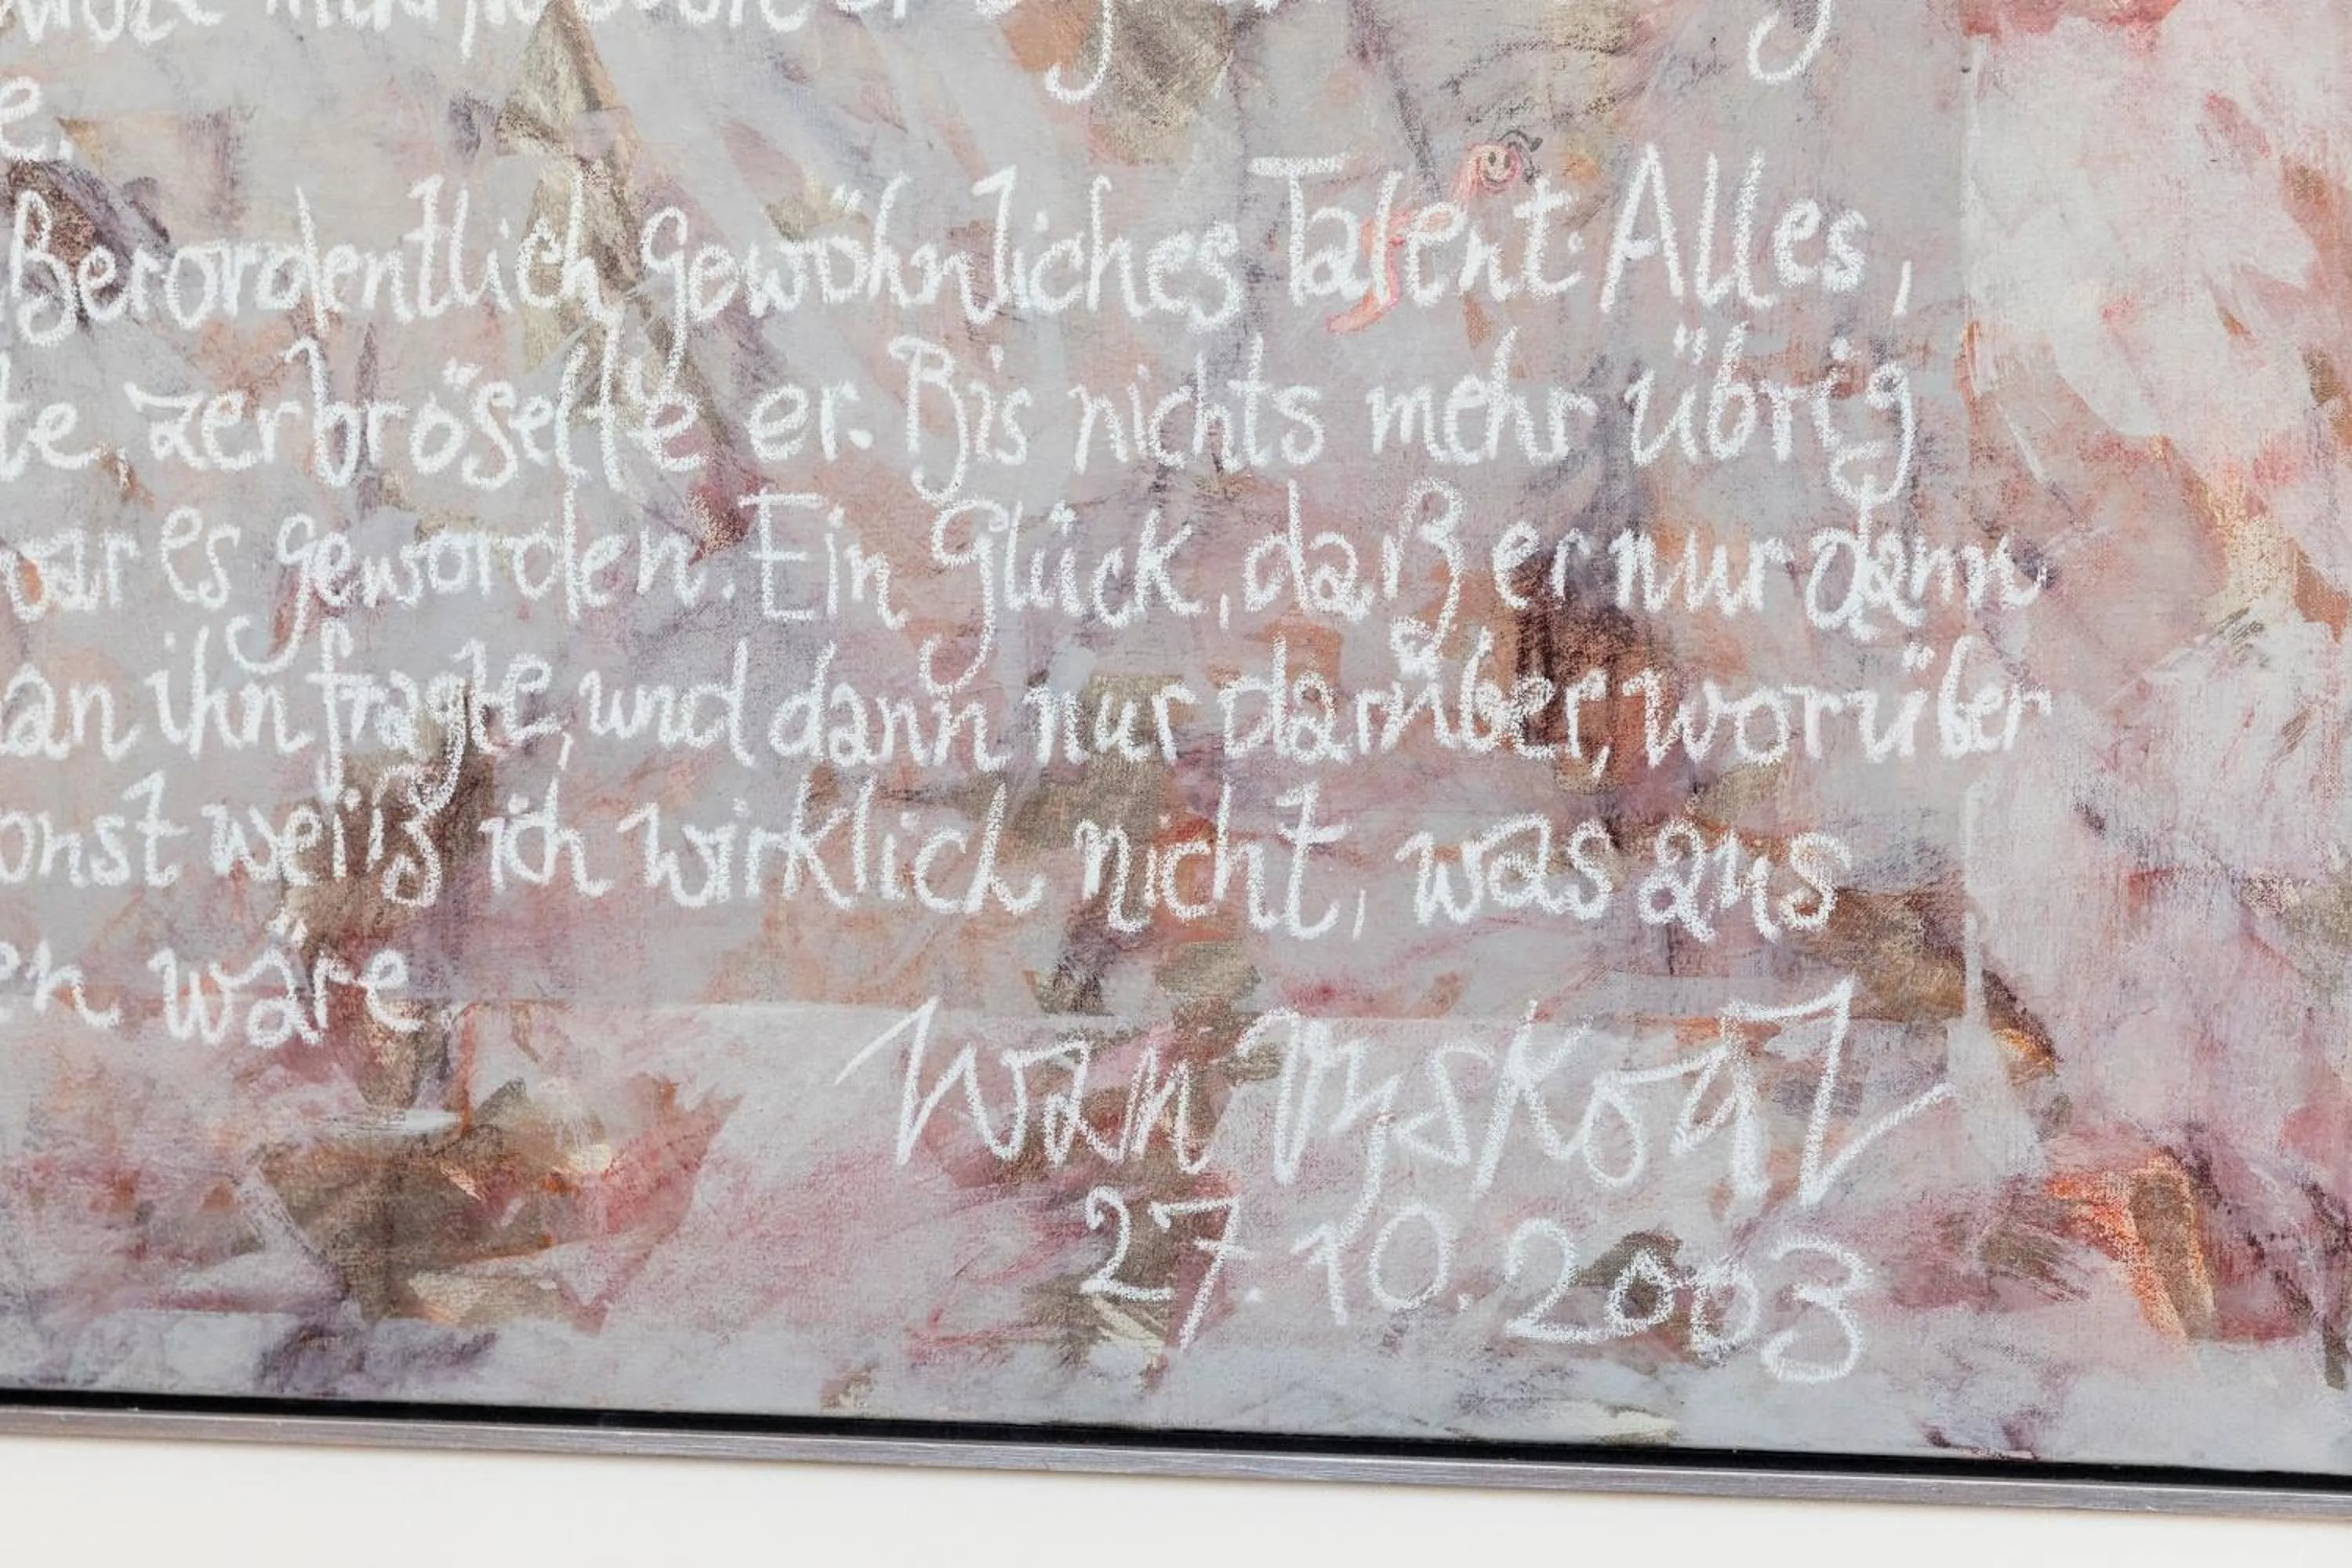 e.
ßerordentlich gewöhnliches Talent: Alles,
te, zerbröselte er. Bis nichts mehr übrig
war es geworden. Ein Glück, daß er nur dann
an ihn fragte, und dann nur darüber, worüber
onst weiß ich wirklich nicht, was aus
en wäre
27.10.2003